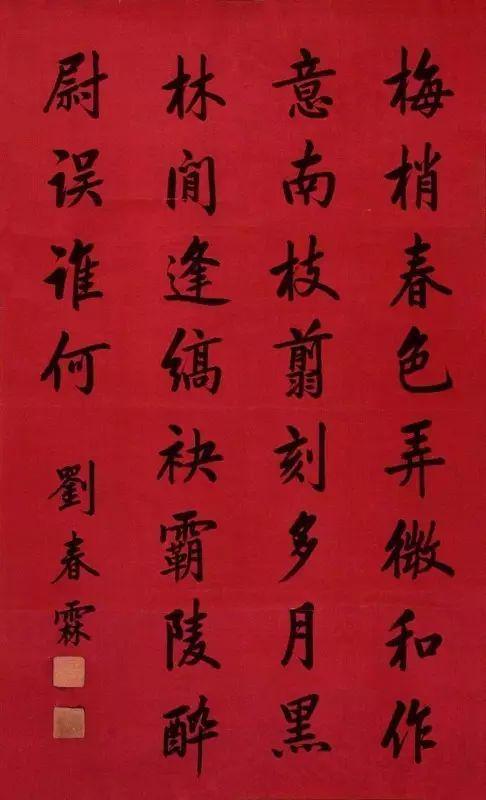 梅梢春色弄微和作
意南枝翦刻多月黑
林間逢縞袂霸陵醉
尉误谁何
劉春霖